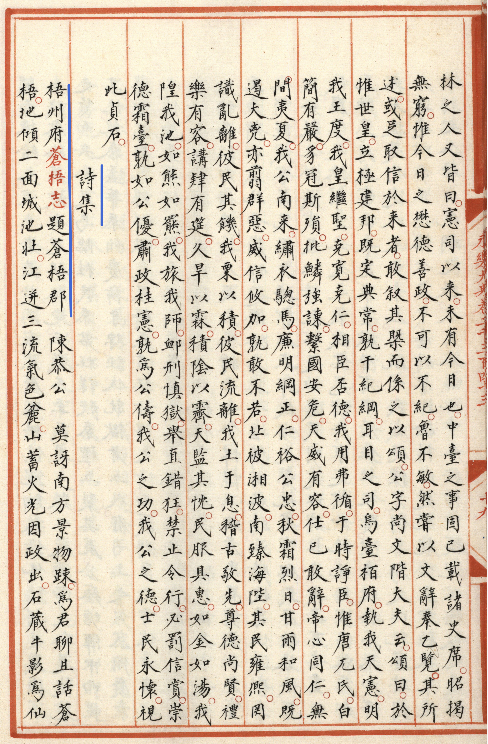 林之人又皆曰憲司以來未有今日也中臺之事固已載諸史席昭揭
無窮惟今日之懋德善政不可以不紀魯不敏然嘗以文辭奉乙覽其所
述或足取信於來者敢叙其槩而係之以頌公字尚文階大夫云頌曰於
惟世皇立極建邦旣定典常孰干紀綱耳目之司烏臺栢府執我天憲明
我王度我皇繼聖克寛克仁相臣否德我用弗循于時諍臣惟唐兀氏白
簡有嚴豸冠斯殞批鱗強諫繫國安危天威有容仕已敢辭帝心同仁無
間夷夏我公南來繡衣驄馬廣明綱正仁裕公忠秋霜烈日甘雨和風旣
遏大兇亦翦群惡威信攸加孰敢不若北被湘波南臻海陲其民雍熙罔
識亂離彼民其饑我粟以積彼民流離我土于息稽古敬先尊德尚賢禮
樂有容講肆有筵久旱以霖積陰以霽天監其忱民服具惠如金如湯我
隍我池如熊如羆我旅我師卹刑慎獄舉直錯枉禁止令行必罰信賞崇
德霜臺孰如公優肅政桂憲孰爲公儔我公之功我公之德士民永懷視
此貞石
詩集
梧州府蒼梧志題蒼梧郡 陳恭公 莫訝南方景物踈爲君聊且話蒼
梧地傾二面城池壯江迸三流氣色麄山蓄火光因政出石藏牛影爲仙
永樂大典卷二千三百四十三
十九